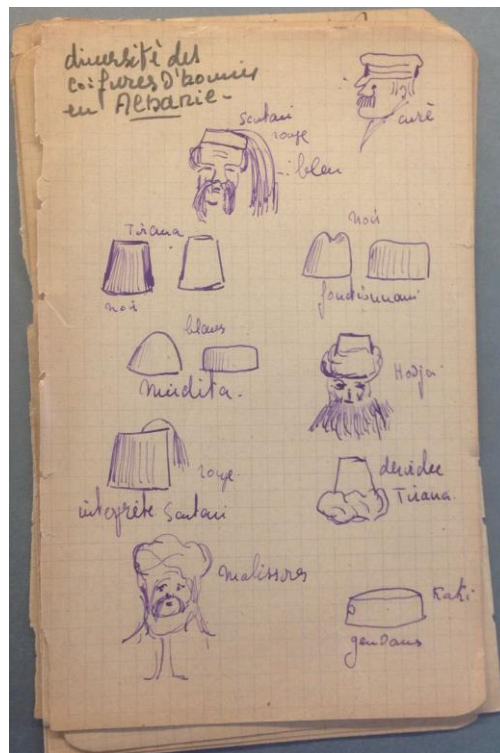 diversité des
coiffures d'hommes
en Albanie -
curé
Scutari
rouge
bleu
Tirana
noir
noir
fonctionnaires
blancs
Mirdita.
Hodja
rouge
interprète Scutari
Tirana.
Malissores
Kaki
gendarmes